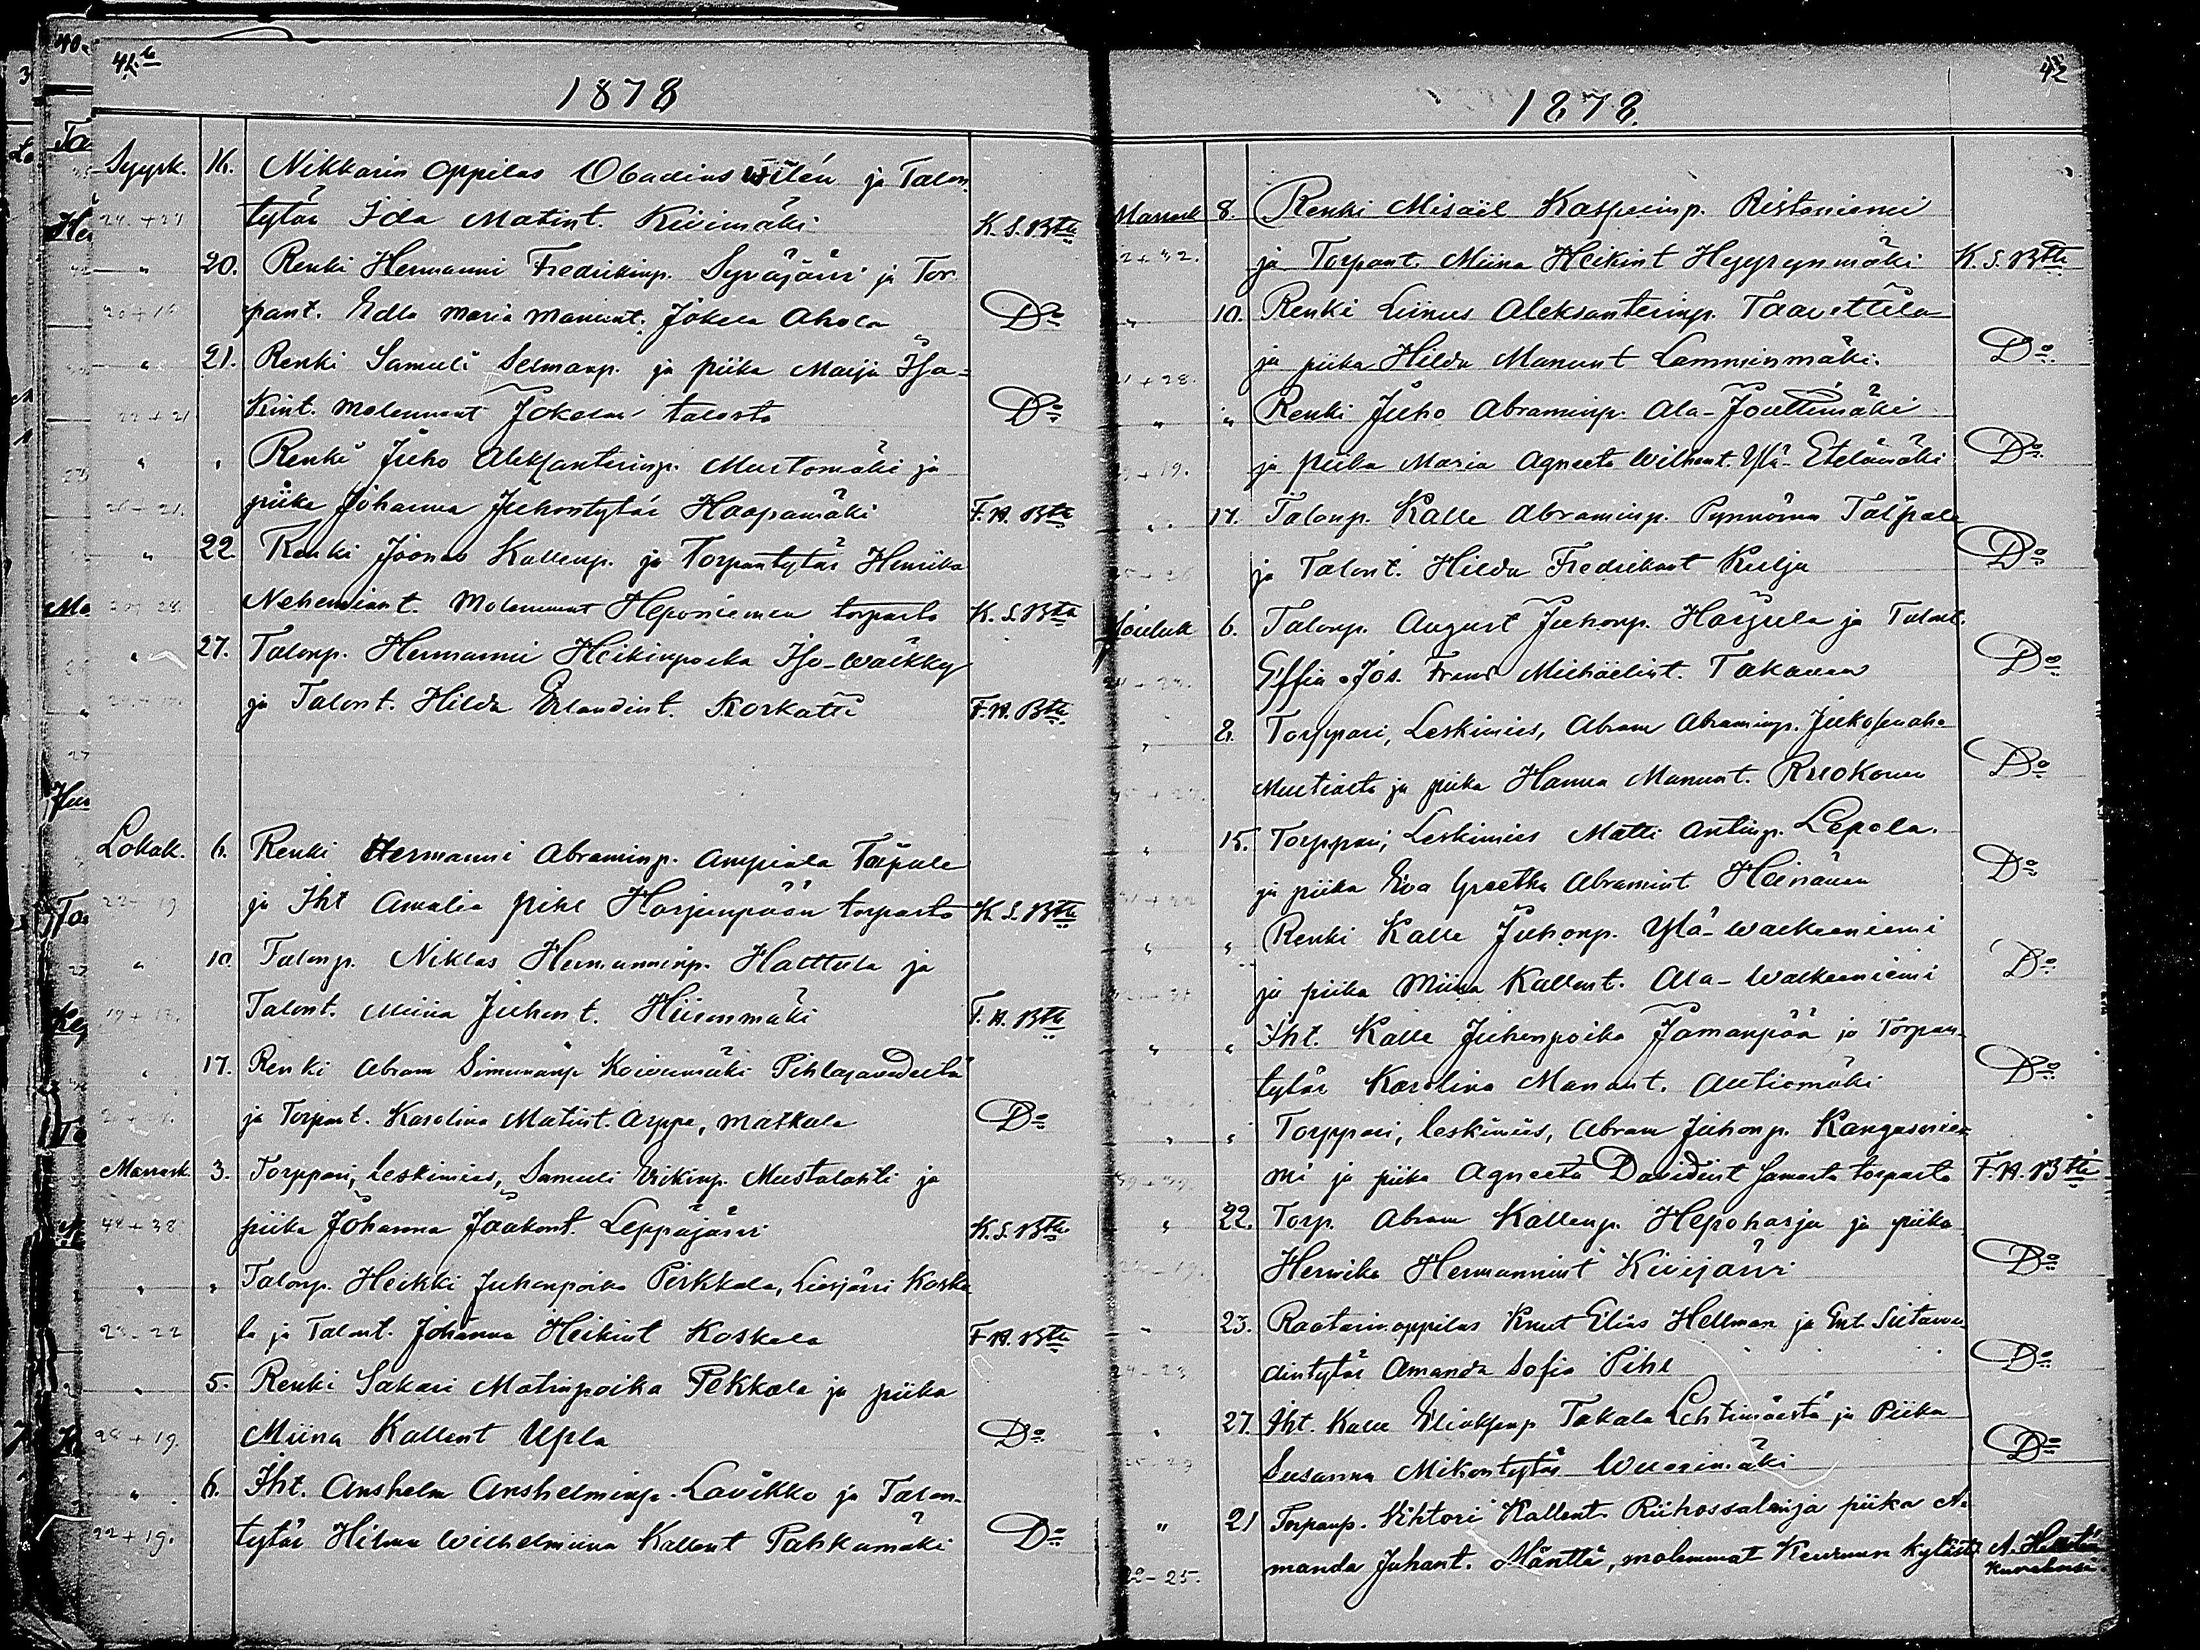 41.b
1878
Syysk. 16. Nikkarin oppilas Obadias Wilén ja Talon
24 + 27 tytär Ida Matint. Kivimäki K. S. Btti
" 20. Renki Hermanni Fredrikinp. Syväjärvi ja Tor
20 + 16 pant. Edla Maria Manunt. Jokela Ahola Do
" 21. Renki Samuli Selmanp. ja piika Maija Isa-
22 + 21 kint. molemmat Jokelan talosta Do
" " Renki Juho Aleksanterinp. Mustomäki ja
26 + 21. piika Johanna Juhontytär Haapamäki F. H. Btti
" 22 Renki Joonas Kallenp. ja Torpantytär Henrika
Nehemiant. Molemmat Heponiemen torpasta K. S. Btti
" 27. Talonp. Hermanni Heikinpoika Iso-Walkky
ja Talont. Hilda Erlandint. Korkatti F. H. Btti
Lokak. 6. Renki Hermanni Abraminp. Ampiala Taipale
23 + 19 ja Iht Amalia Pihl Harjunpään torpasta K. S. Btti
" 10 Talonp. Niklas Hermanninp. Hattula ja
19 + 17. Talont. Miina Juhont. Hiirenmäki F. H. Btti
" 17. Renki Abram Simunanp Koivumäki Pihlajavedeltä
ja Torpant. Karolina Matint. Arppe, Matkala Do
Marrask 3. Torppari, leskimies, Samuli Erikinp. Mustalahti ja
48 + 38 piika Johanna Jaakont. Leppäjärvi K. S. Btti
" " Talonp. Heikki Juhonpoika Pirkkala, Liesjärvi Koske
23 - 22 la ja Talont. Johanna Heikint Koskela F H. Btti
" 5. Renki Sakari Matinpoika Pekkala ja piika
28 + 19. Miina Kallent Upla Do
" 6. Iht. Anshelm Anshelminp. Lavikko ja Talon-
22 + 19. tytär Hilma Wilhelmiina Kallent Pahkamäki Do
42
1878.
Marrask 8. Renki Misael Kasperinp. Ristoniemi
ja Torpant. Miina Heikint Hyyrynmäki K. S. Btti
" 10. Renki Liinus Aleksanterinp. Taavettila
ja piika Hilda Manunt Lamminmäki. Do
" " Renki Juho Abraminp. Ala-Jouttimäki
ja piika Maria Agneeta Wilhemt. Ylä-Etelämäki Do
" 17. Talonp. Kalle Abraminp. Pynnönen Taipale
ja Talont. Hilda Fredrikint Kulju Do
Jouluk 6. Talonp. August Juhonp. Harjula ja Talont.
Effia Jos. Frans Michäelint. Takanen Do
" 8. Torppari, Leskimies, Abram Abraminp. Jukosenaho
Multialta ja piika Hanna Manunt. Ruokonen Do
" 15. Torppari, Leskimies Matti Antinp. Lepola.
ja piika Eva Greetha Abramint Heinänen Do
" " Renki Kalle Juhonp. Ylä-Walkeaniemi
ja piika Miina Kallent. Ala-Walkeaniemi Do
" " Iht. Kalle Juhonpoika Jamanpää ja Torpan-
tytär Karolina Manunt. Autiomäki Do
" " Torppari, leskimies, Abram Juhonp. Kangasnie-
mi ja piika Agneeta Davidint samasta torpasta F. H. Btti
" 22. Torp. Abram Kallenp. Hepoharju ja piika
Henrika Hermannint Kivijärvi Do
" 23. Raatarin oppilas Knut Elias Hellman ja Ent. Siltavou-
dintytär Amanda Sofia Pihl Do
" 27. Iht. Kalle Eliaksenp Takala Lehtimäestä ja Piika
Susanna Mikontytär Wuorimäki Do
" 21 Torpanp. Vihtori Kallent. Riihossalmi ja piika A-
22 - 25. manda Juhant. Mänttä, molemmat Keuruun kylästä.